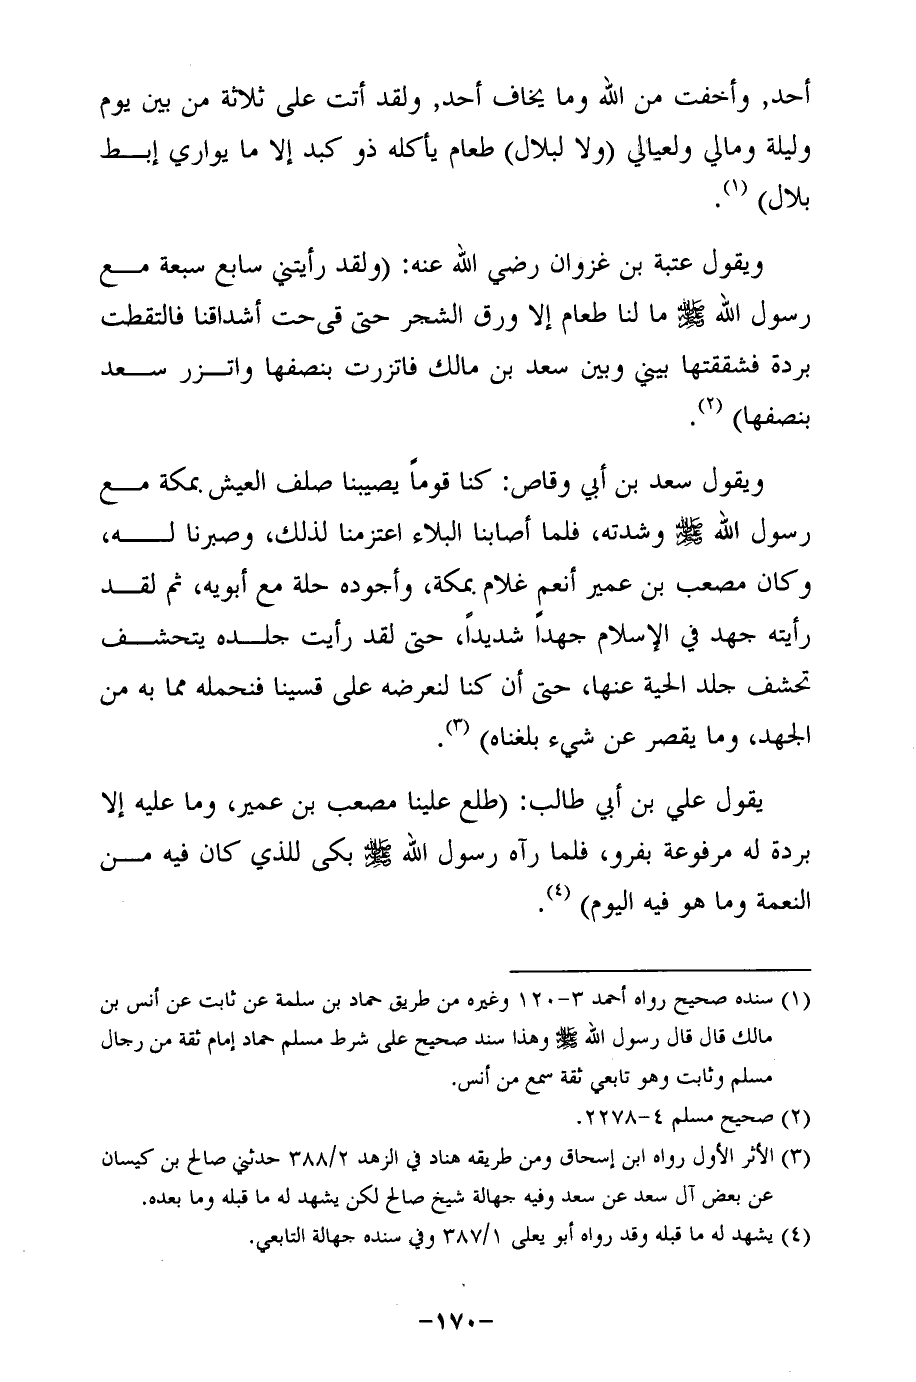 أحد, وأخفت من الله وما يخاف أحد, ولقد أتت على ثلاثة من بين يوم
وليلة ومالي ولعيالي (ولا لبلال) طعام يأكله ذو كبد إلا ما يواري إبــط
بلال) (١).
ويقول عتبة بن غزوان رضي الله عنه: (ولقد رأيتني سابع سبعة مــع
رسول الله ﷺ ما لنا طعام إلا ورق الشجر حتى قرحت أشداقنا فالتقطت
بردة فشققتها بيني وبين سعد بن مالك فاتزرت بنصفها واتــزر ســعد
بنصفها) (٢).
ويقول سعد بن أبي وقاص: كنا قوماً يصيبنا صلف العيش بمكة مــع
رسول الله ﷺ وشدته، فلما أصابنا البلاء اعتزمنا لذلك، وصبرنا لــه،
وكان مصعب بن عمير أنعم غلام بمكة، وأجوده حلة مع أبويه، ثم لقــد
رأيته جهد في الإسلام جهداً شديداً، حتى لقد رأيت جلــده يتحشــف
تحشف جلد الحية عنها، حتى أن كنا لنعرضه على قسينا فنحمله مما به من
الجهد، وما يقصر عن شيء بلغناه) (٣).
يقول علي بن أبي طالب: (طلع علينا مصعب بن عمير، وما عليه إلا
بردة له مرفوعة بفرو، فلما رآه رسول الله ﷺ بكى للذي كان فيه مــن
النعمة وما هو فيه اليوم) (٤).
(١) سنده صحيح رواه أحمد ٣-١٢٠ وغيره من طريق حماد بن سلمة عن ثابت عن أنس بن
مالك قال قال رسول الله ﷺ وهذا سند صحيح على شرط مسلم حماد إمام ثقة من رجال
مسلم وثابت وهو تابعي ثقة سمع من أنس.
(٢) صحيح مسلم ٤-٢٢٧٨.
(٣) الأثر الأول رواه ابن إسحاق ومن طريقه هناد في الزهد ٣٨٨/٢ حدثني صالح بن كيسان
عن بعض آل سعد عن سعد وفيه جهالة شيخ صالح لكن يشهد له ما قبله وما بعده.
(٤) يشهد له ما قبله وقد رواه أبو يعلى ٣٨٧/١ وفي سنده جهالة التابعي.
-١٧٠-